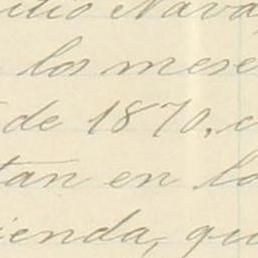 ilio Nava
los mese
de 1870, c
tan en lo
ienda, qu